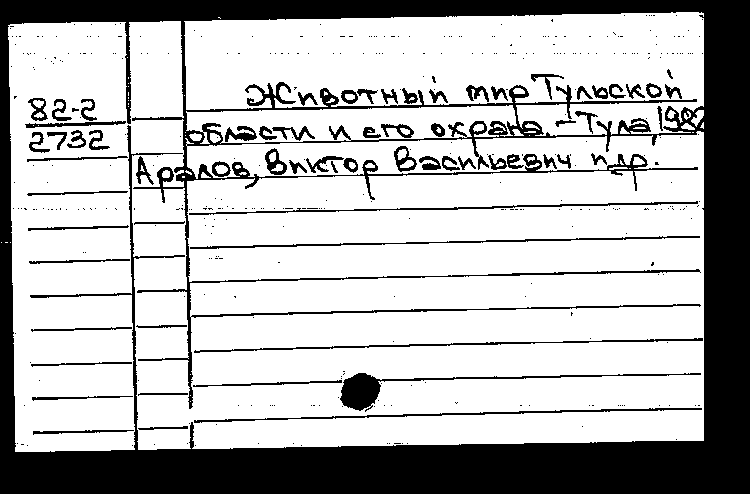 82-2
2732
Животный мир Тульской
области и его охрана. - Тула, 1982
Аралов, Виктор Васильевич и др.